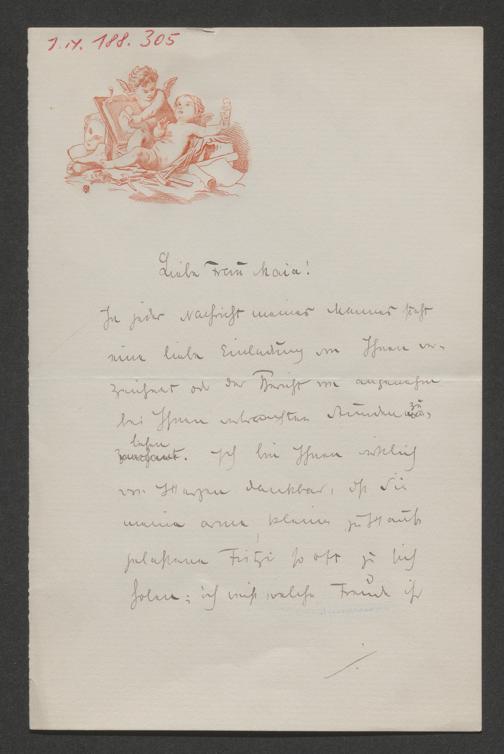 1.IV.188.305
Liebe Frau Maia!
In jeder Nachricht meines Mannes steht
eine liebe Einladung von Ihnen ver-
zeichnet od der Bericht von angenehm
bei Ihnen verbrachten Stunden zu
lesen. Ich bin Ihnen wirklich
von Herzen dankbar, dß Sie
meine arme, kleine zu Haus
gelassene Fritzi so oft zu sich
holen; ich weiß welche Freude ihr
./.